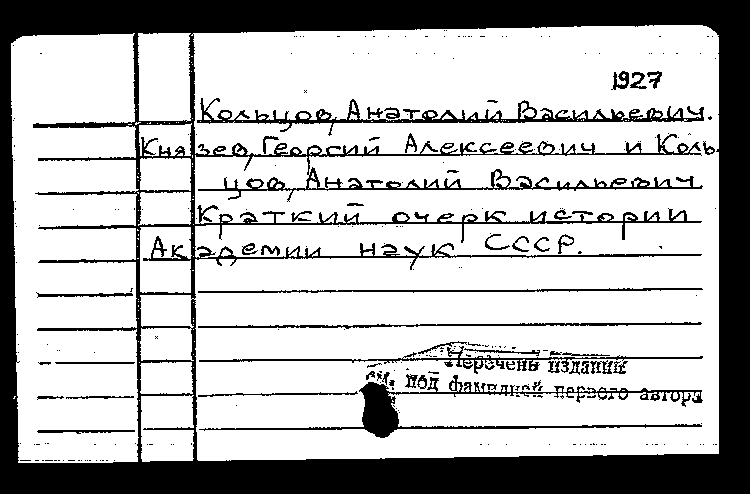 1927
Кольцов, Анатолий Васильевич.
Князев, Георгий Алексеевич и Коль-
цов, Анатолий Васильевич
Краткий очерк истории
Академии наук СССР.
Перечень изданий
см. под фамилией первого автора